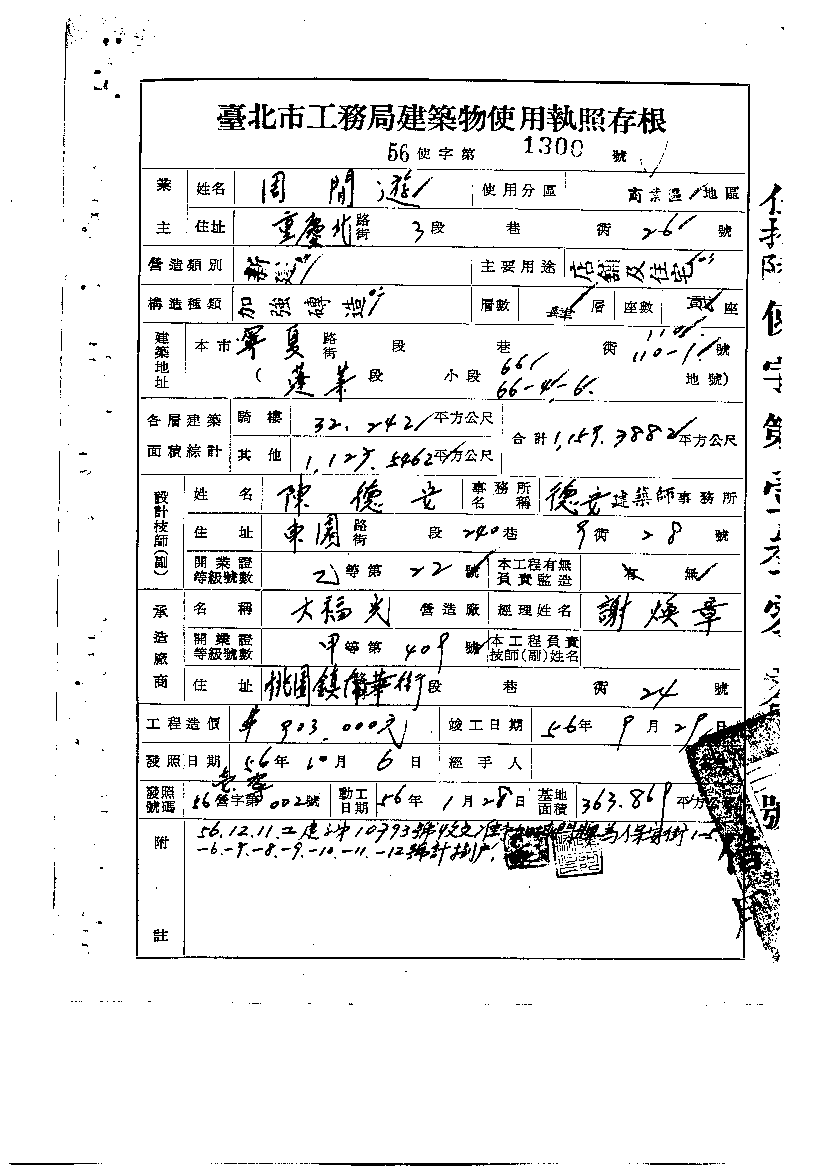 臺北市工務局建築物使用執照存根
56 使字第 1300 號
業主 姓名 周閒遊 使用分區 商業區 地區
住址 重慶北 路街 3 段 巷 衖 26 號
營造類別 新建 主要用途 店舖及住宅
構造種類 加強磚造 層數 層 座數 座
建築地址 本市 寧夏 路街 段 巷 衖 110 110-1 號
( 蓬萊 段 小段 66 66-4,-6 地號)
各層建築面積綜計 騎樓 32.242 平方公尺 合計 1,159.3882 平方公尺
其他 1,127.5462 平方公尺
設計技師(副) 姓名 陳德安 事務所名稱 德安建築師事務所
住址 東園 路街 段 240 巷 9 衖 28 號
開業證等級號數 乙 等第 22 號 本工程有無負責監造 有 無
承造廠商 名稱 大福光 營造廠 經理姓名 謝煥章
開業證等級號數 甲 等第 409 號 本工程負責技師(副)姓名
住址 桃園鎮 華街 段 巷 衖 24 號
工程造價 903,000元 竣工日期 56 年 9 月 29 日
發照日期 56 年 10 月 6 日 經手人
發照號碼 56 營字第 002 號 動工日期 56 年 1 月 28 日 基地面積 363.869 平方
附註 56.12.11.工建 字 10393號 為保安街 1-5
-6.-7.-8.-9.-10.-11.-12號計
使字第
號
借